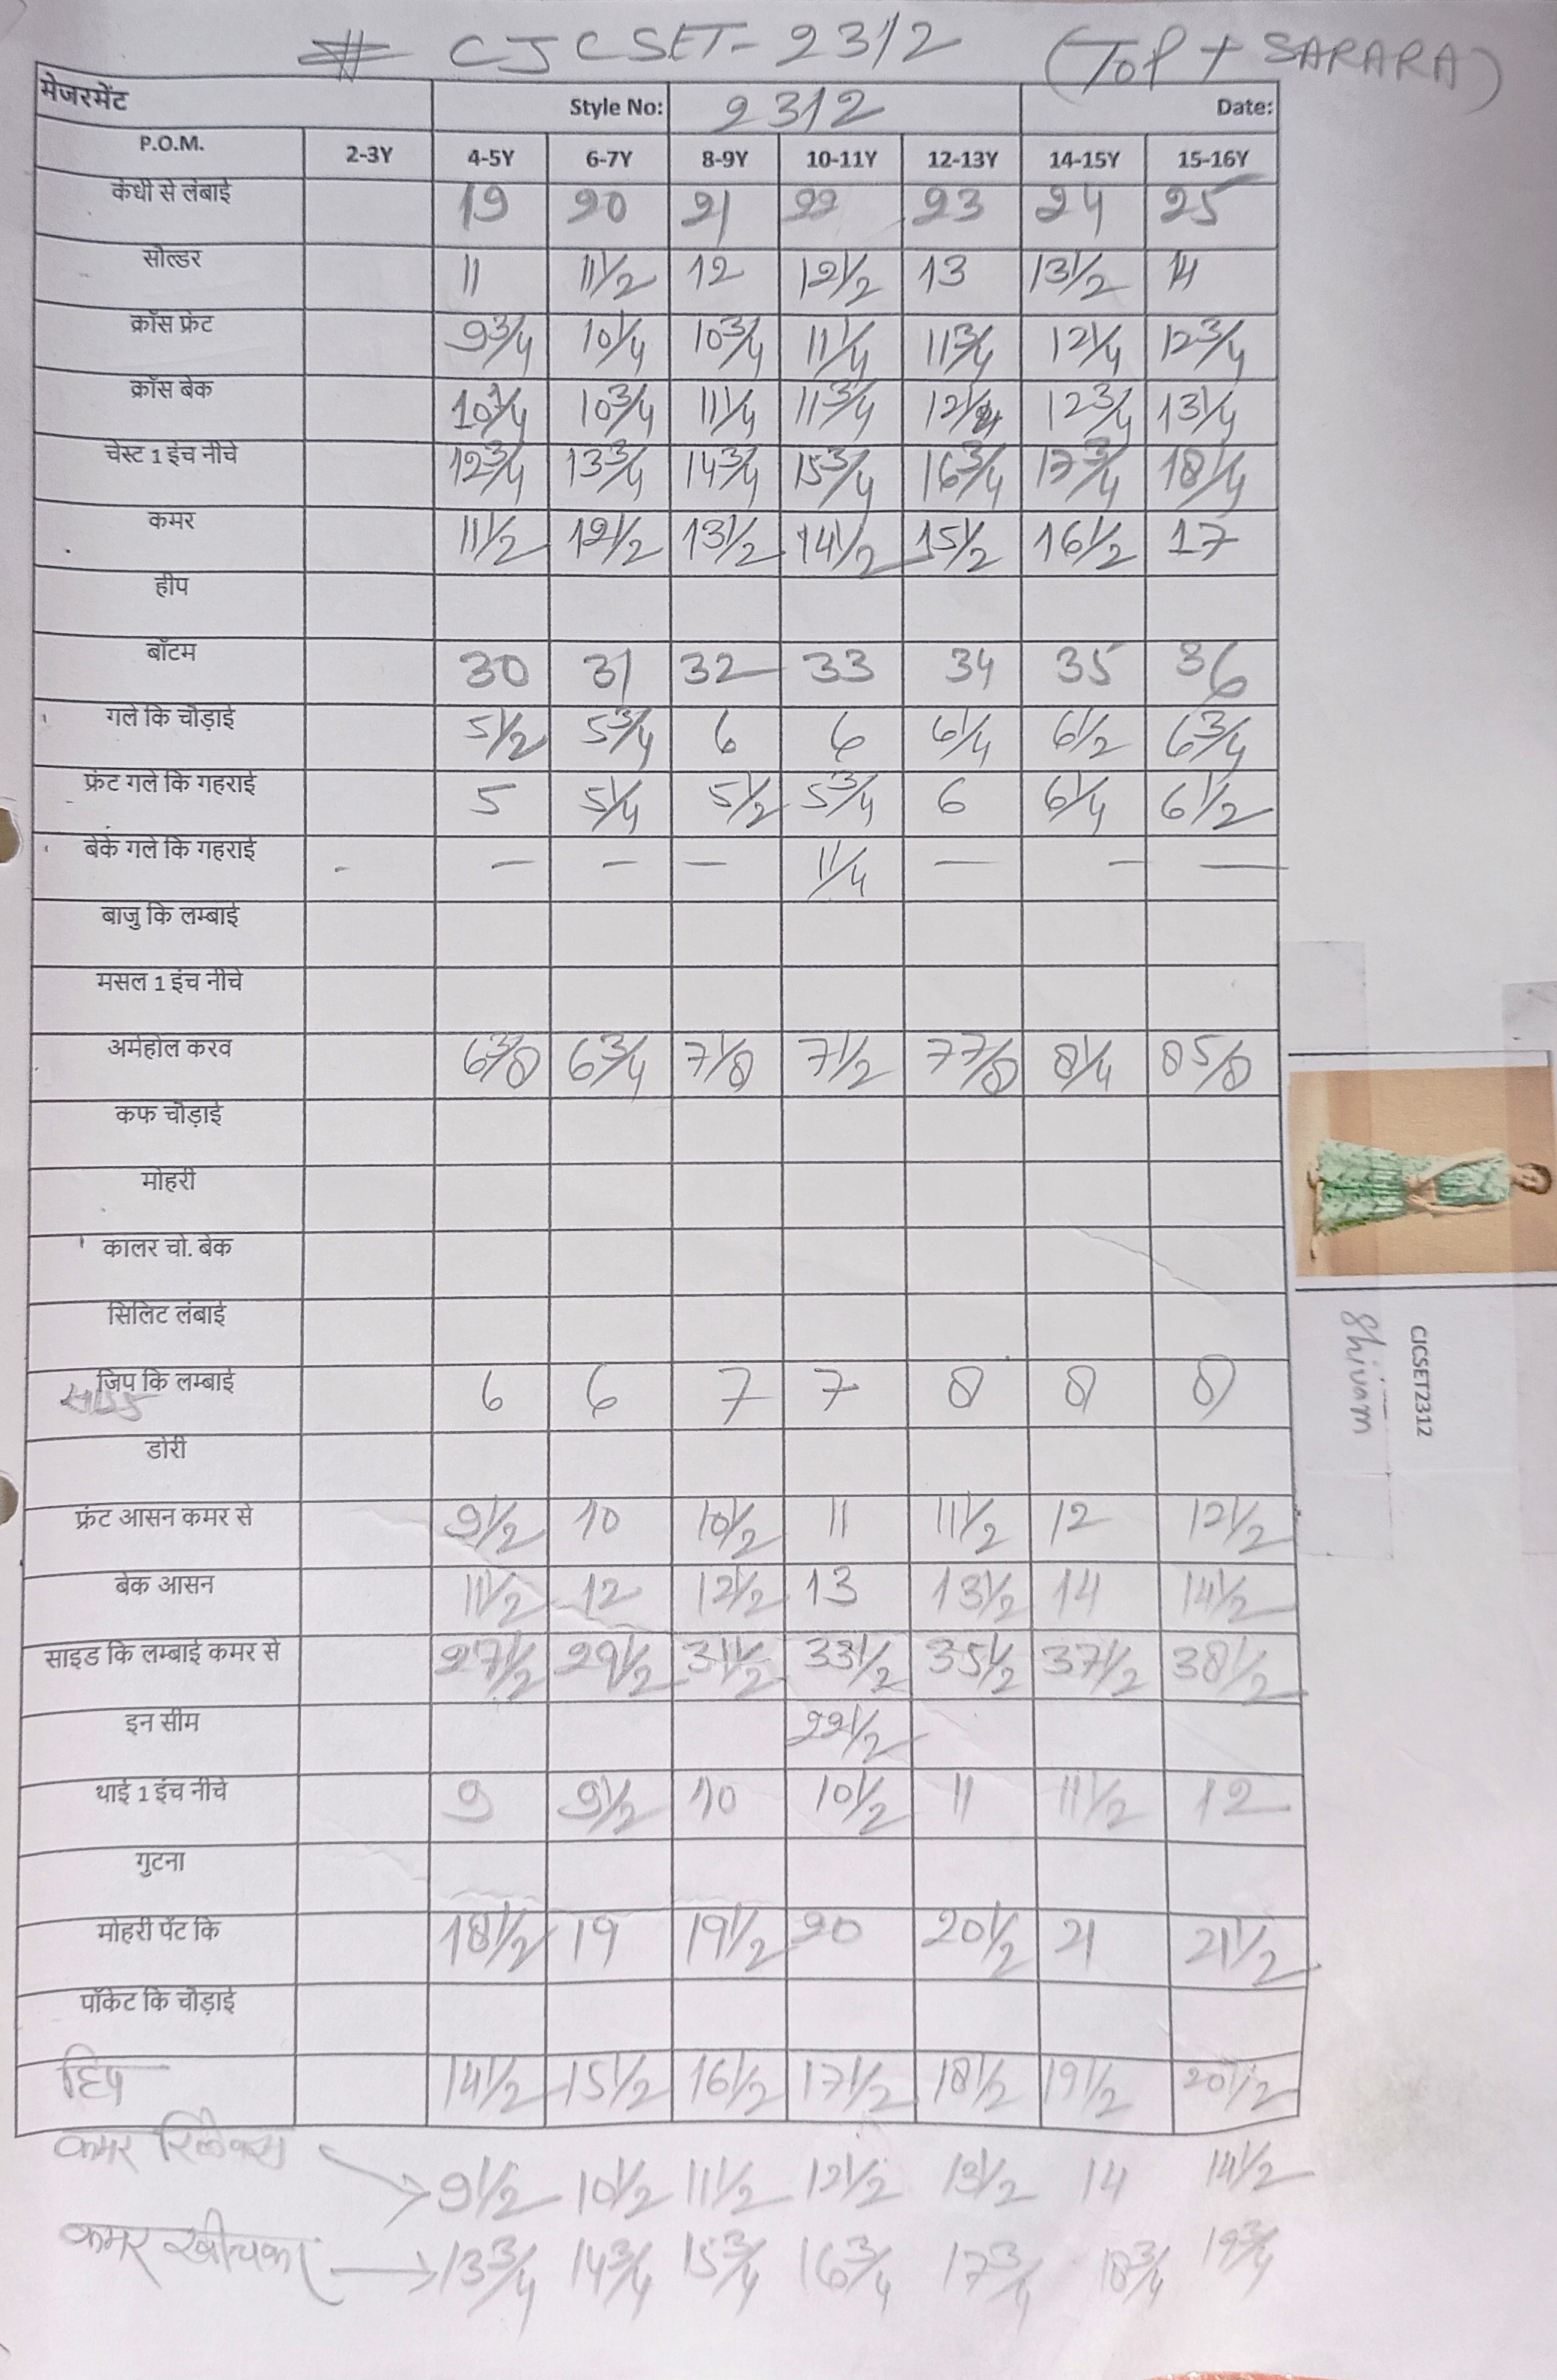 # CJCSET-2312 (TOP + SARARA)
मेजरमेंट Style No: 2312 Date:
P.O.M. 2-3Y 4-5Y 6-7Y 8-9Y 10-11Y 12-13Y 14-15Y 15-16Y
कंधी से लंबाई 19 20 21 22 23 24 25
सोल्डर 11 11 1/2 12 12 1/2 13 13 1/2 14
क्रॉस फ्रंट 9 3/4 10 1/4 10 3/4 11 1/4 11 3/4 12 1/4 12 3/4
क्रॉस बेक 10 1/4 10 3/4 11 1/4 11 3/4 12 1/4 12 3/4 13 1/4
चेस्ट 1 इंच नीचे 12 3/4 13 3/4 14 3/4 15 3/4 16 3/4 17 3/4 18 1/4
कमर 11 1/2 12 1/2 13 1/2 14 1/2 15 1/2 16 1/2 17
हीप
बॉटम 30 31 32 33 34 35 36
गले कि चौड़ाई 5 1/2 5 3/4 6 6 6 1/4 6 1/2 6 3/4
फ्रंट गले कि गहराई 5 5 1/4 5 1/2 5 3/4 6 6 1/4 6 1/2
बेक गले कि गहराई - — — — 1 1/4 — — —
बाजु कि लम्बाई
मसल 1 इंच नीचे
अर्महोल करव 6 3/8 6 3/4 7 1/8 7 1/2 7 7/8 8 1/4 8 5/8
कफ चौड़ाई
मोहरी
कालर चो. बेक
सिलिट लंबाई
जिप कि लम्बाई 6 6 7 7 8 8 8
साइड
डोरी
फ्रंट आसन कमर से 9 1/2 10 10 1/2 11 11 1/2 12 12 1/2
बेक आसन 11 1/2 12 12 1/2 13 13 1/2 14 14 1/2
साइड कि लम्बाई कमर से 27 1/2 29 1/2 31 1/2 33 1/2 35 1/2 37 1/2 38 1/2
इन सीम 22 1/2
थाई 1 इंच नीचे 9 9 1/2 10 10 1/2 11 11 1/2 12
गुटना
मोहरी पेंट कि 18 1/2 19 19 1/2 20 20 1/2 21 21 1/2
पॉकेट कि चौड़ाई
हिप 14 1/2 15 1/2 16 1/2 17 1/2 18 1/2 19 1/2 20 1/2
कमर रिलेक्स → 9 1/2 10 1/2 11 1/2 12 1/2 13 1/2 14 14 1/2
कमर खीचकर → 13 3/4 14 3/4 15 3/4 16 3/4 17 3/4 18 3/4 19 3/4
CJCSET2312
Shivam